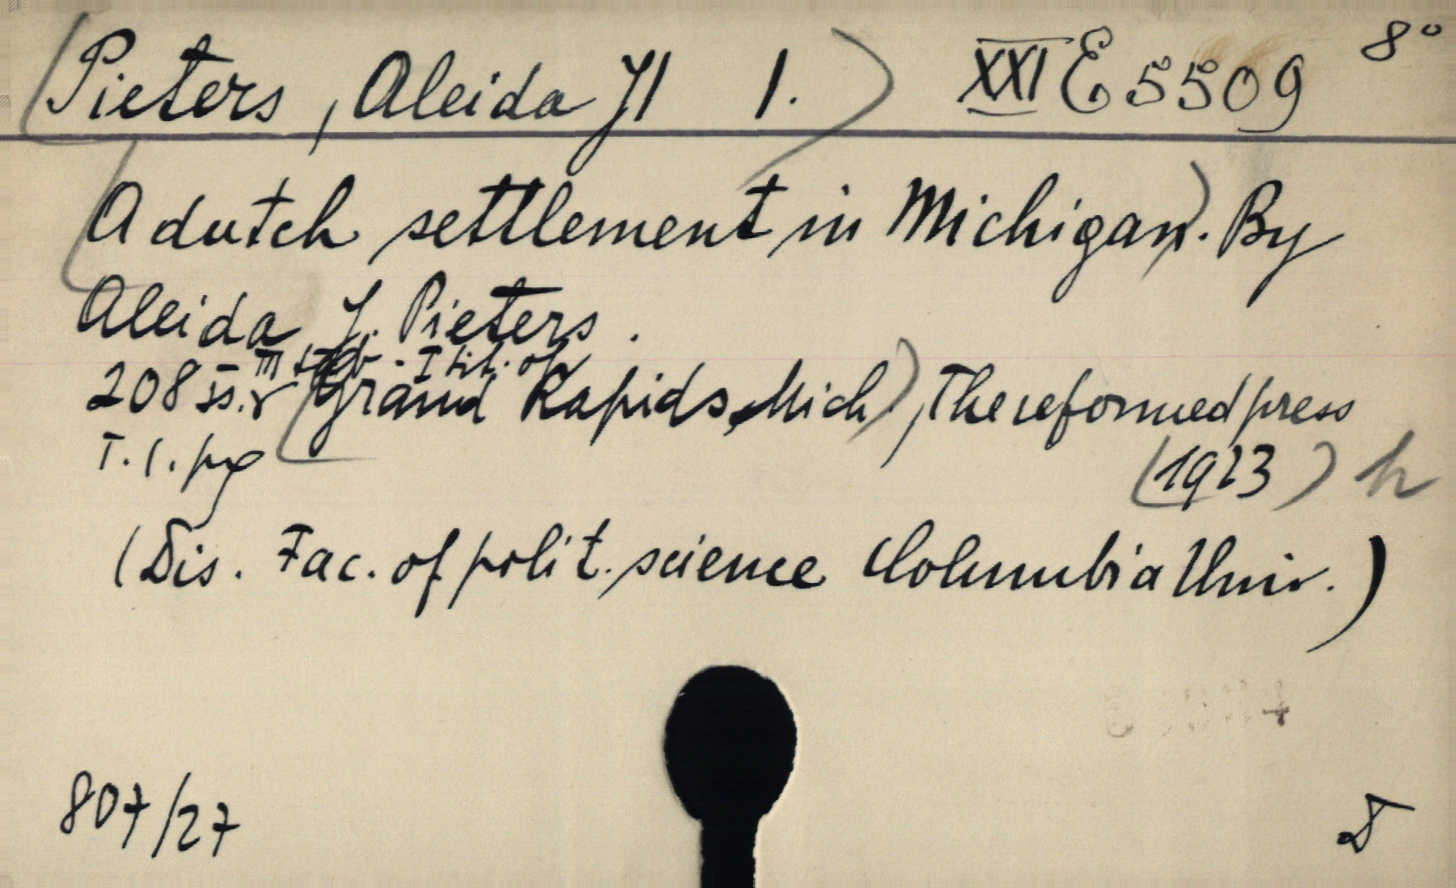 (Pieters, Aleida J 1.) XXI E 5509 8°
(A dutch settlement in Michigan). By
Aleida J. Pieters.
208 ss. (Grand Rapids, Mich), The reformed press
(1923) h
(Dis. Fac. of polit. science Columbia Univ.)
807/27